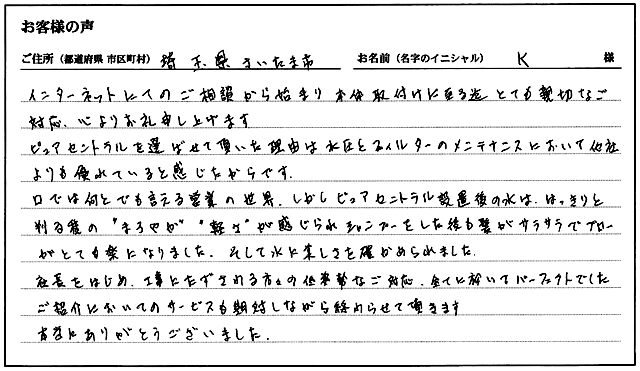 お客様の声
ご住所（都道府県 市区町村） 埼玉県さいたま市 お名前（名字のイニシャル） K 様
インターネットにてのご相談から始まり 本体取付けに至る迄 とても親切なご
対応、心よりお礼申し上げます
ピュアセントラルを選ばせて頂いた理由は水圧とフィルターのメンテナンスにおいて他社
よりも優れていると感じたからです.
口では何とでも言える営業の世界. しかしピュアセントラル設置後の水は、はっきりと
判る程の"まろやか" "軽さ"が感じられシャンプーをした後も髪がサラサラでブロー
がとても楽になりました. そして水に美しさを確かめられました.
社長をはじめ、工事にたずさわる方々の仕事 なご対応、全てに於いてパーフェクトでした
ご紹介においてのサービスも期待しながら終わらせて頂きます
ありがとうございました.